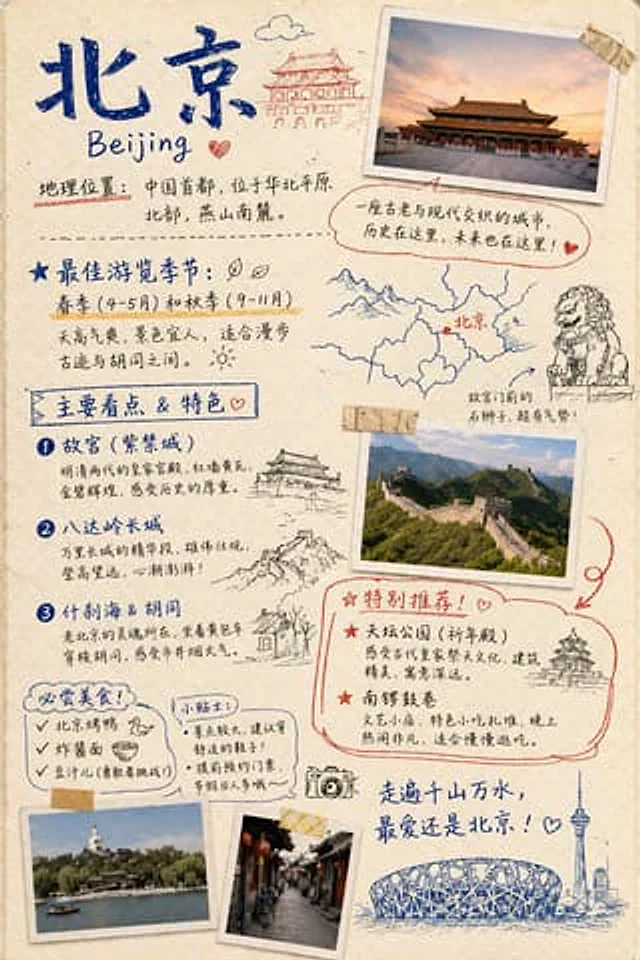 北京
Beijing
地理位置：中国首都，位于华北平原
北部，燕山南麓。
一座古老与现代交织的城市，
历史在这里，未来也在这里！
最佳游览季节：
春季（4-5月）和秋季（9-11月）
天高气爽，景色宜人，适合漫步
古迹与胡同之间。
北京
故宫门前的
石狮子，超有气势！
主要看点 & 特色
1 故宫（紫禁城）
明清两代的皇家宫殿，红墙黄瓦，
金碧辉煌，感受历史的厚重。
2 八达岭长城
万里长城的精华段，雄伟壮观，
登高望远，心潮澎湃！
3 什刹海 & 胡同
老北京的灵魂所在，坐着黄包车
穿梭胡同，感受市井烟火气。
特别推荐！
天坛公园（祈年殿）
感受古代皇家祭天文化，建筑
精美，寓意深远。
南锣鼓巷
文艺小店，特色小吃扎堆，晚上
热闹非凡，适合慢慢逛吃。
必尝美食！
✓ 北京烤鸭
✓ 炸酱面
✓ 豆汁儿（勇敢者挑战！）
小贴士：
• 景点较大，建议穿
舒适的鞋子！
• 提前预约门票，
节假日人多哦～
走遍千山万水，
最爱还是北京！